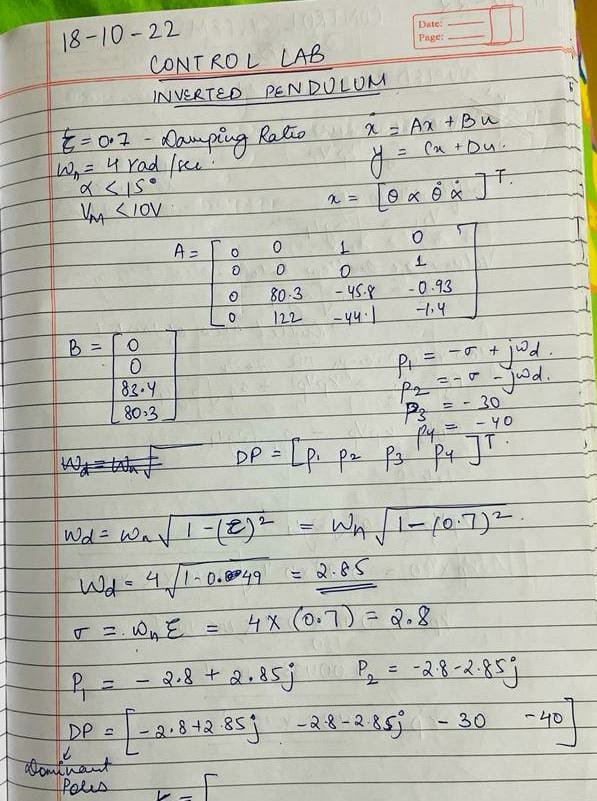 18-10-22
Date:
Page:
CONTROL LAB
INVERTED PENDULUM
ξ = 0.7 - Damping Ratio
ωn = 4 rad/sec.
α < 15°
VM < 10V.
ẋ = Ax + Bu
y = Cx + Du.
x = [θ α θ̇ α̇]T.
A = [0 0 1 0
0 0 0 1
0 80.3 -45.8 -0.93
0 122 -44.1 -1.4]
B = [0
0
83.4
80.3]
P1 = -σ + jωd.
P2 = -σ - jωd.
P3 = -30
P4 = -40
ωd = ωn√
DP = [P1 P2 P3 P4]T.
ωd = ωn√1-(ξ)² = ωn√1-(0.7)².
ωd = 4√1-0.49 = 2.85
σ = ωn ξ = 4×(0.7) = 2.8
P1 = -2.8 + 2.85j P2 = -2.8-2.85j
DP = [-2.8+2.85j -2.8-2.85j -30 -40]
↓
Dominant
Poles